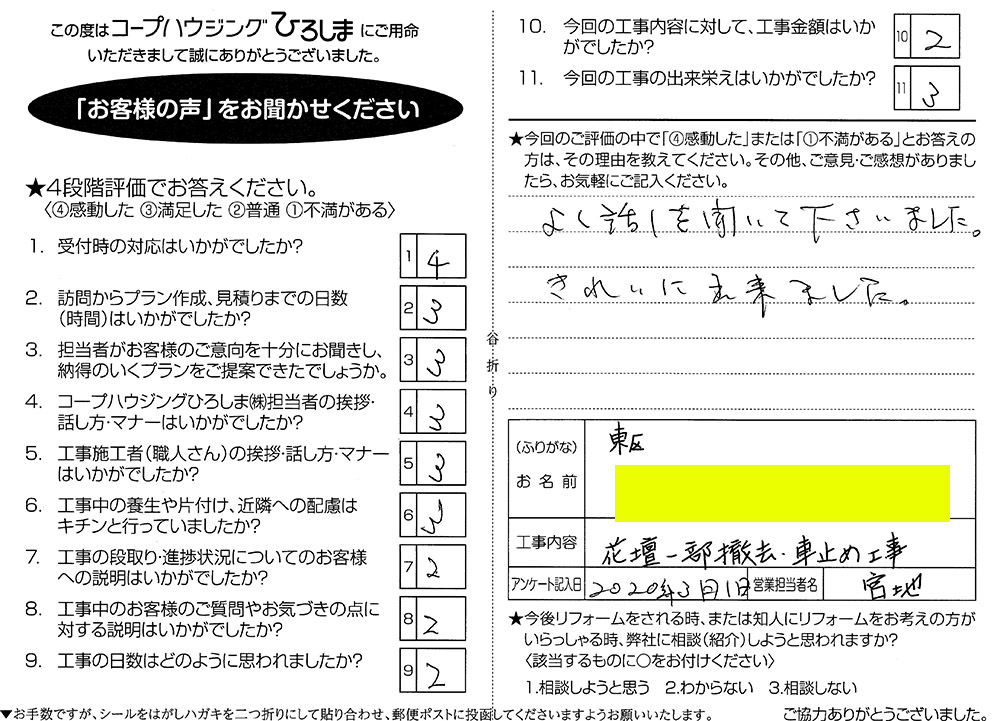 この度はコープハウジングひろしまにご用命
いただきまして誠にありがとうございました。
「お客様の声」をお聞かせください
★4段階評価でお答えください。
〈④感動した ③満足した ②普通 ①不満がある〉
1. 受付時の対応はいかがでしたか?
1 4
2. 訪問からプラン作成、見積りまでの日数
(時間)はいかがでしたか?
2 3
3. 担当者がお客様のご意向を十分にお聞きし、
納得のいくプランをご提案できたでしょうか。
3 3
4. コープハウジングひろしま㈱担当者の挨拶・
話し方・マナーはいかがでしたか?
4 3
5. 工事施工者(職人さん)の挨拶・話し方・マナー
はいかがでしたか?
5 3
6. 工事中の養生や片付け、近隣への配慮は
キチンと行っていましたか?
6 3
7. 工事の段取り・進捗状況についてのお客様
への説明はいかがでしたか?
7 2
8. 工事中のお客様のご質問やお気づきの点に
対する説明はいかがでしたか?
8 2
9. 工事の日数はどのように思われましたか?
9 2
▼お手数ですが、シールをはがしハガキを二つ折りにして貼り合わせ、郵便ポストに投函してくださいますようお願いいたします。
谷折り
10. 今回の工事内容に対して、工事金額はいか
がでしたか?
10 2
11. 今回の工事の出来栄えはいかがでしたか?
11 3
★今回のご評価の中で「④感動した」または「①不満がある」とお答えの
方は、その理由を教えてください。その他、ご意見・ご感想がありまし
たら、お気軽にご記入ください。
よく話しを聞いて下さいました。
きれいに出来ました。
(ふりがな)
お名前
東区
工事内容 花壇一部撤去・車止め工事
アンケート記入日 2020年3月1日 営業担当者名 宮地
★今後リフォームをされる時、または知人にリフォームをお考えの方が
いらっしゃる時、弊社に相談(紹介)しようと思われますか?
〈該当するものに○をお付けください〉
1.相談しようと思う 2.わからない 3.相談しない
ご協力ありがとうございました。